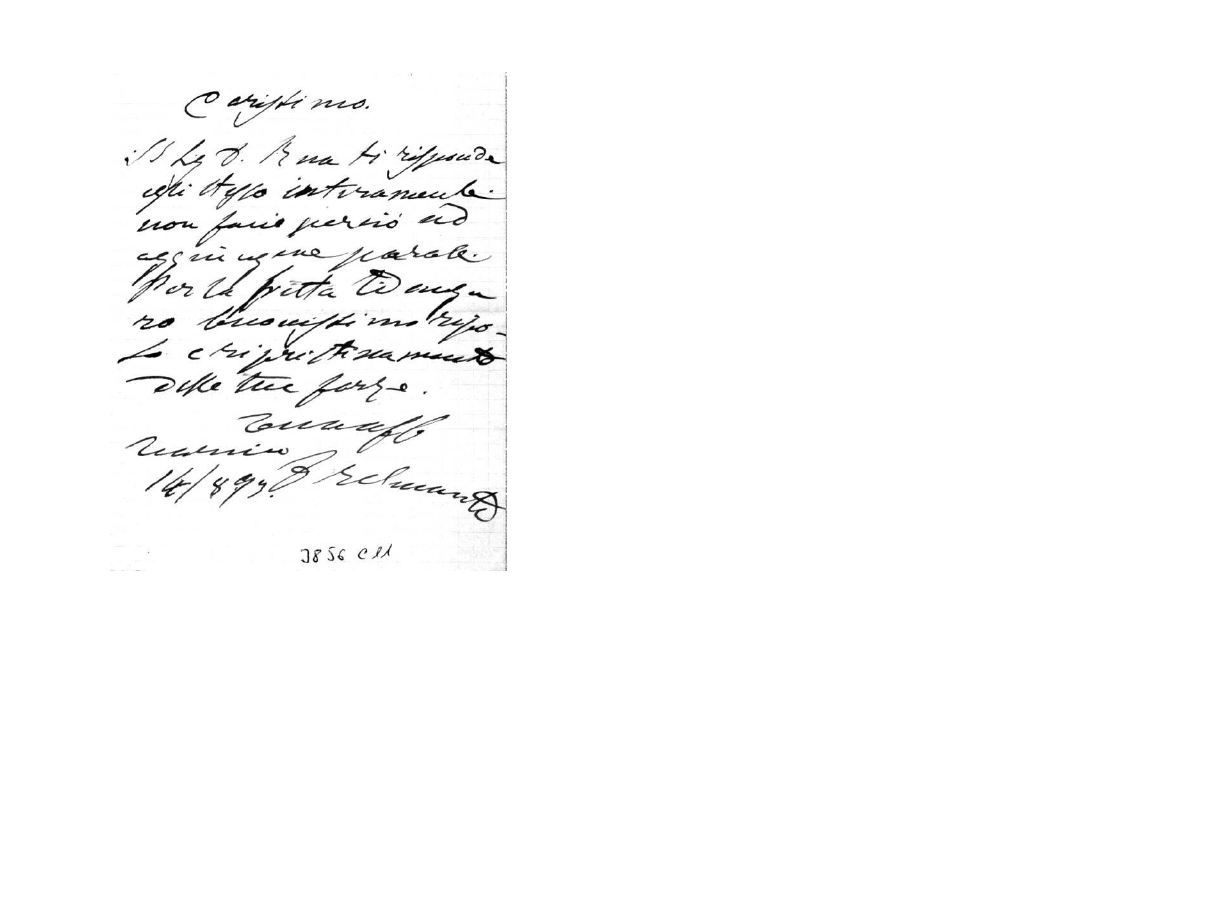 Carissimo.
Il Sig D. Rua ti risponde
egli stesso interamente.
non fa perciò ad
aggiungere parole.
Per la fretta Ti augu
ro buonissimo ripo-
so e ripristinamento
delle tue forze.
tuo aff
Torino
14/893. D Belmonte
3856 C11